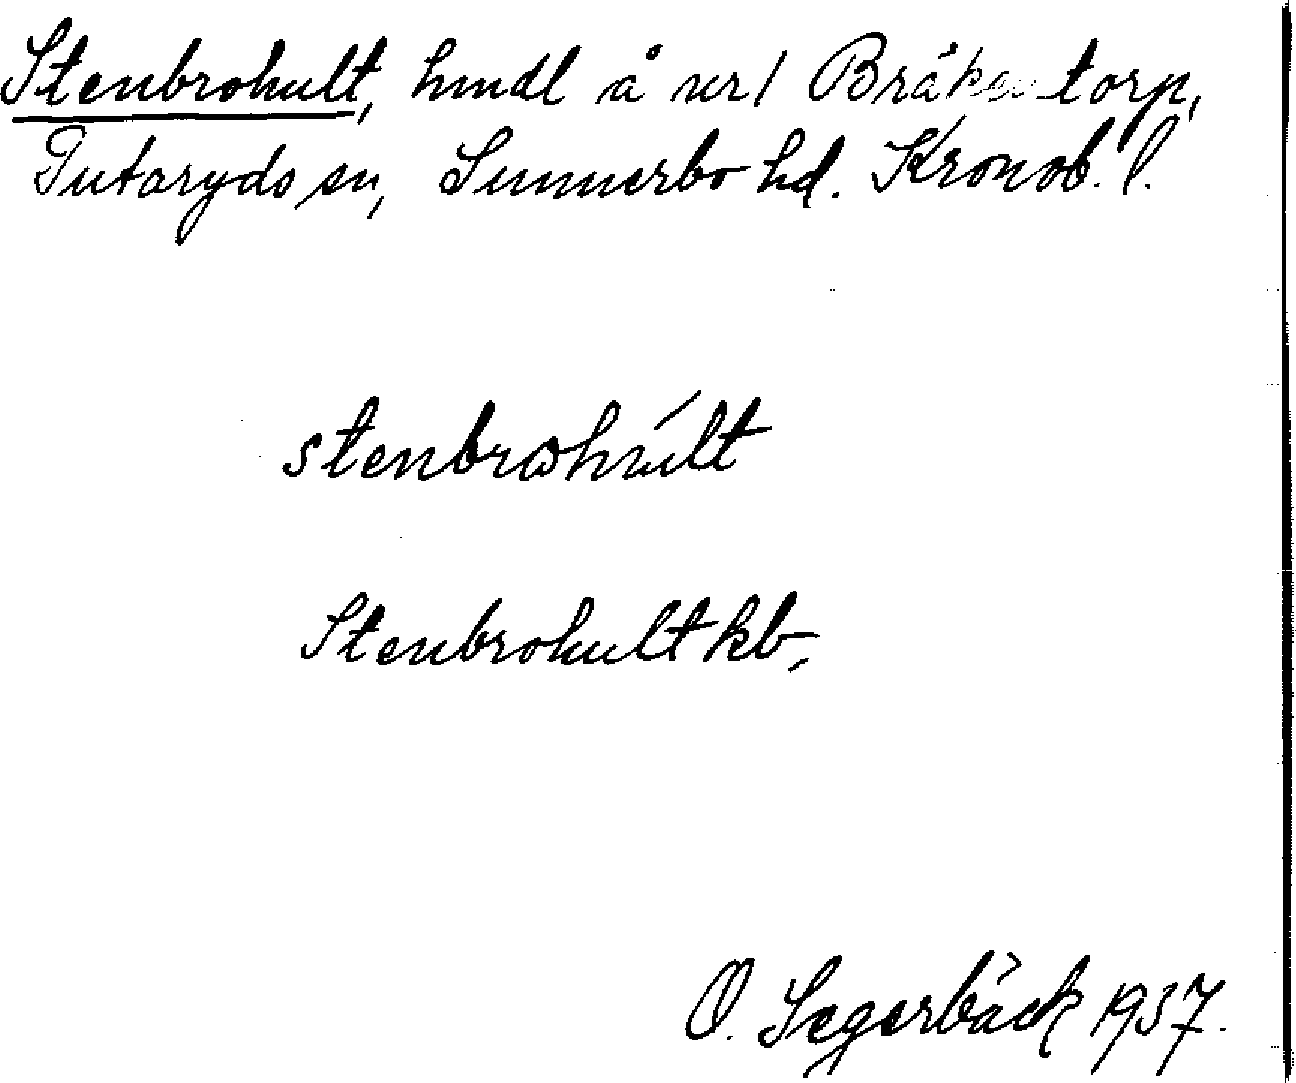 Stenbrohult, hmdl å nr 1 Bråkentorp,
Putaryds sn, Sunnerbo hd. Kronob. l.
stenbrωhúlt
Stenbrohult kb,
O. Segerbäck 1937.